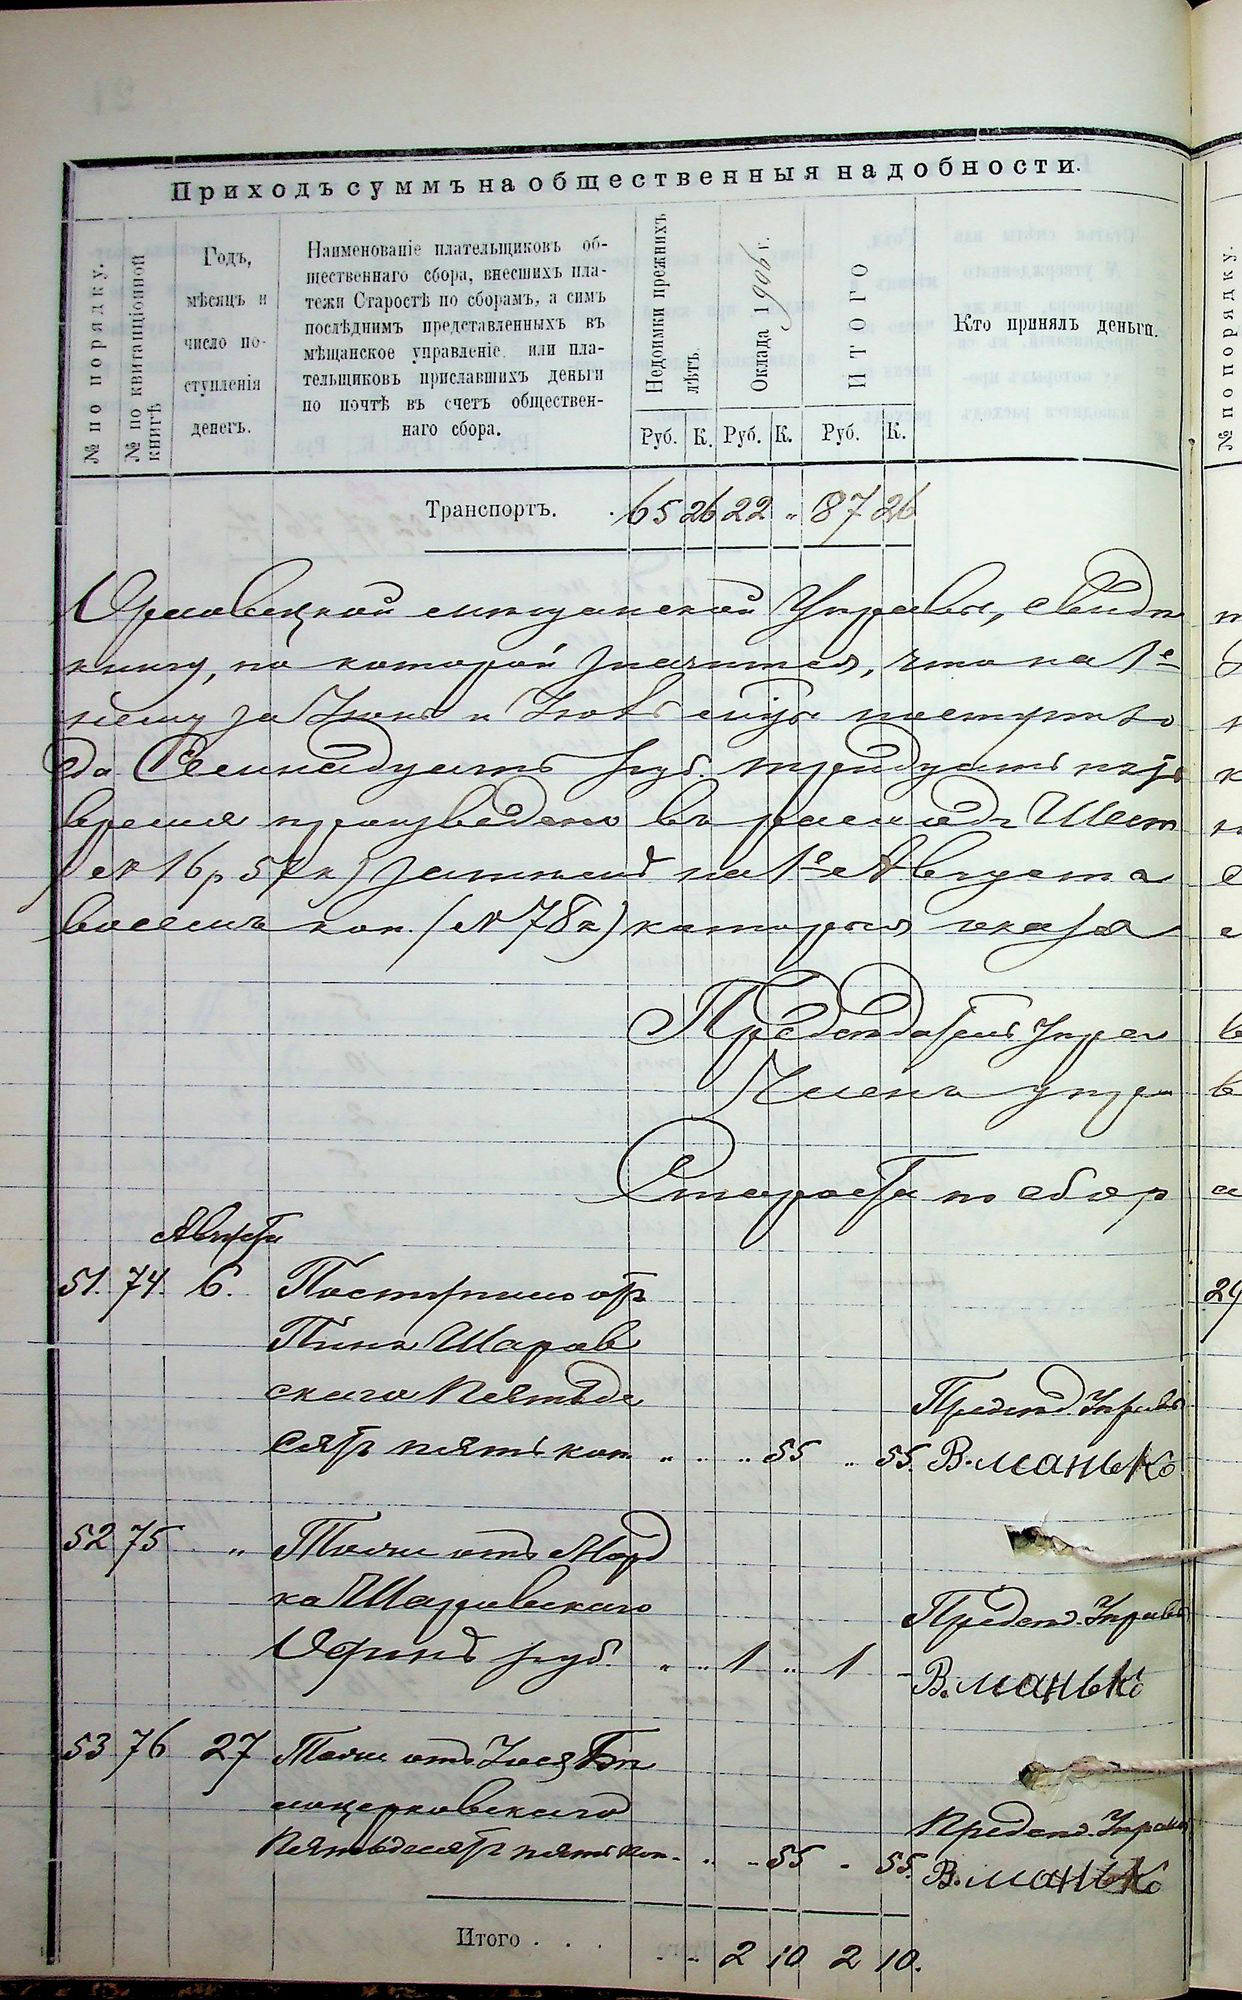 Приходъ суммъ на общественныя надобности.
№ по порядку.
№ по квитанціонной книгѣ
Годъ,
мѣсяцъ и
число по-
ступленія
денегъ.
Наименованіе плательщиковъ об-
щественнаго сбора, внесшихъ пла-
тежи Старостѣ по сборамъ, а симъ
послѣднимъ представленныхъ въ
мѣщанское управленіе или пла-
тельщиковъ приславшихъ деньги
по почтѣ въ счетъ обществен-
наго сбора.
Недоимки прежнихъ
лѣтъ.
Оклада 1906 г.
ИТОГО
Кто принялъ деньги.
№ по порядку.
Руб. К. Руб. К. Руб. К.
Транспортъ. 65 26 22 „ 87 26
мѣщанской Управы,
книгу, по которой значится, что на 1е
за Іюнь и
да Семнадцать руб. тридцать пять
время произведено въ расходъ Шест
16 р 57 к) на 1е Августа
восемь коп. (78 к) которыя
Предсѣдатель Упра
Членъ упра
Староста по сбор
Августа
51. 74. 6. Поступило отъ
Шаров
скаго Пятьде
сятъ пять коп. „ „ „ 55 „ 55.
Предсѣд. Управы
В. Манько
52 75 „ Тоже отъ Морд
ка Шаровскаго
Одинъ руб. „ „ 1 „ 1 -
Предсѣд. Управы
В. Манько
53 76 27 Тоже отъ Бѣ
лоцерковскаго
Пятьдесятъ пять коп. - „ - 55 - 55.
Предсѣд. Управы
В. Манько
Итого . . . - - 2 10 2 10.